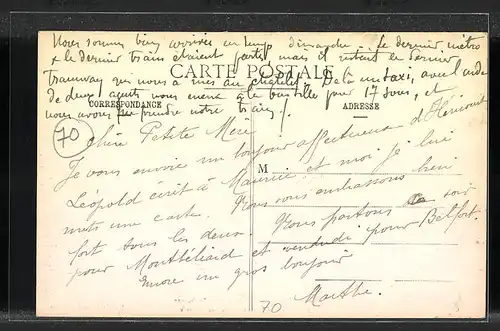 Nous sommes bien arrivées en temps dimanche le dernier métro
& le dernier train étaient partis mais il restait le dernier
tramway qui nous a mis au châtelet. De là un taxi, avec l'aide
CARTE POSTALE
de deux agents nous mena à la bastille pour 17 sous, et
CORRESPONDANCE
ADRESSE
nous avons pu prendre notre train!
70
Chère Petite Mère
Je vous envoie un bonjour affectueux d'Héricourt
M
Léopold écrit à Maurice et moi je lui
mets une carte. Nous vous embrassons bien
fort tous les deux. Nous partons ce soir
pour Montbéliard et vendredi pour Belfort.
Encore un gros bonjour
Marthe.
70